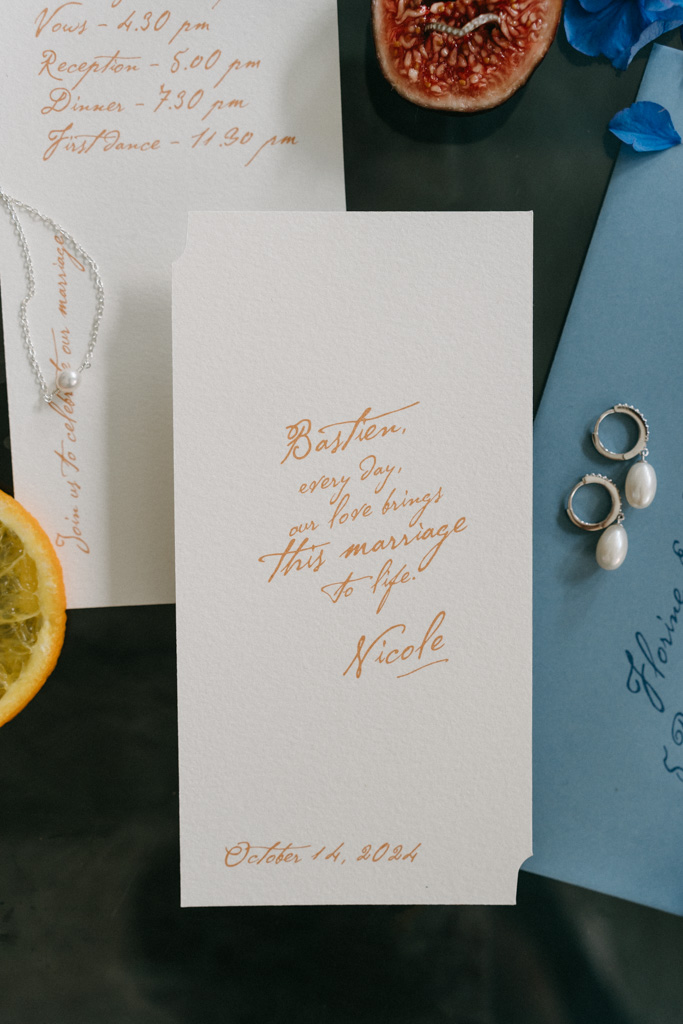 Vows - 4.30 pm
Reception - 5.00 pm
Dinner - 7.30 pm
First dance - 11.30 pm
Join us to celebrate our marriage
Bastien,
every day,
our love brings
this marriage
to life.
Nicole
October 14, 2024
Florine